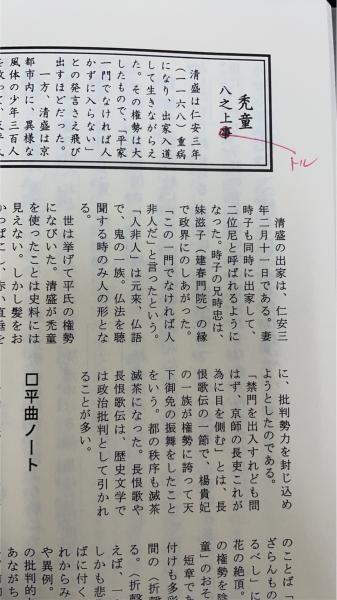 禿童
八之上事
トル
清盛は仁安三年
(一一六八)重病
になり、出家入道
して生きながらえ
た。その権勢は大
したもので、「平家
一門でなければ人
かずに入らない」
との発言さえ飛び
出すほどだった。
一方、清盛は京
都市内に、異様な
風体の少年三百人
清盛の出家は、仁安三
年二月十一日である。妻
時子も同時に出家して、
二位尼と呼ばれるように
なった。時子の兄時忠は、
妹滋子(建春門院)の縁
で政界にのしあがった。
「この一門でなければ人
非人だ」と言ったという。
「人非人」は元来、仏語
で、鬼の一族。仏法を聴
聞する時のみ人の形とな
る。
世は挙げて平氏の権勢
になびいた。清盛が禿童
を使ったことは史料には
見えない。しかし髪をお
かっぱにし、赤い直垂を
に、批判勢力を封じ込め
ようとしたのである。
「禁門を出入すれども問
はず、京師の長吏これが
為に目を側む」とは、長
恨歌伝の一節で、楊貴妃
の一族が権勢に誇って天
下御免の振舞をしたこと
をいう。都の秩序も滅茶
滅茶になった。長恨歌や
長恨歌伝は、歴史文学で
は政治批判として引かれ
ることが多い。
□平曲ノート
のことば「
ざらんもの
るべし」に
花の絶頂。
の権勢を陰
童」のおそ
短章であ
付けも多彩
間の〈折声
る。〈折声
えば、一
しかも悲
ばに付く
れからみ
や異例。
の批判的
あながち